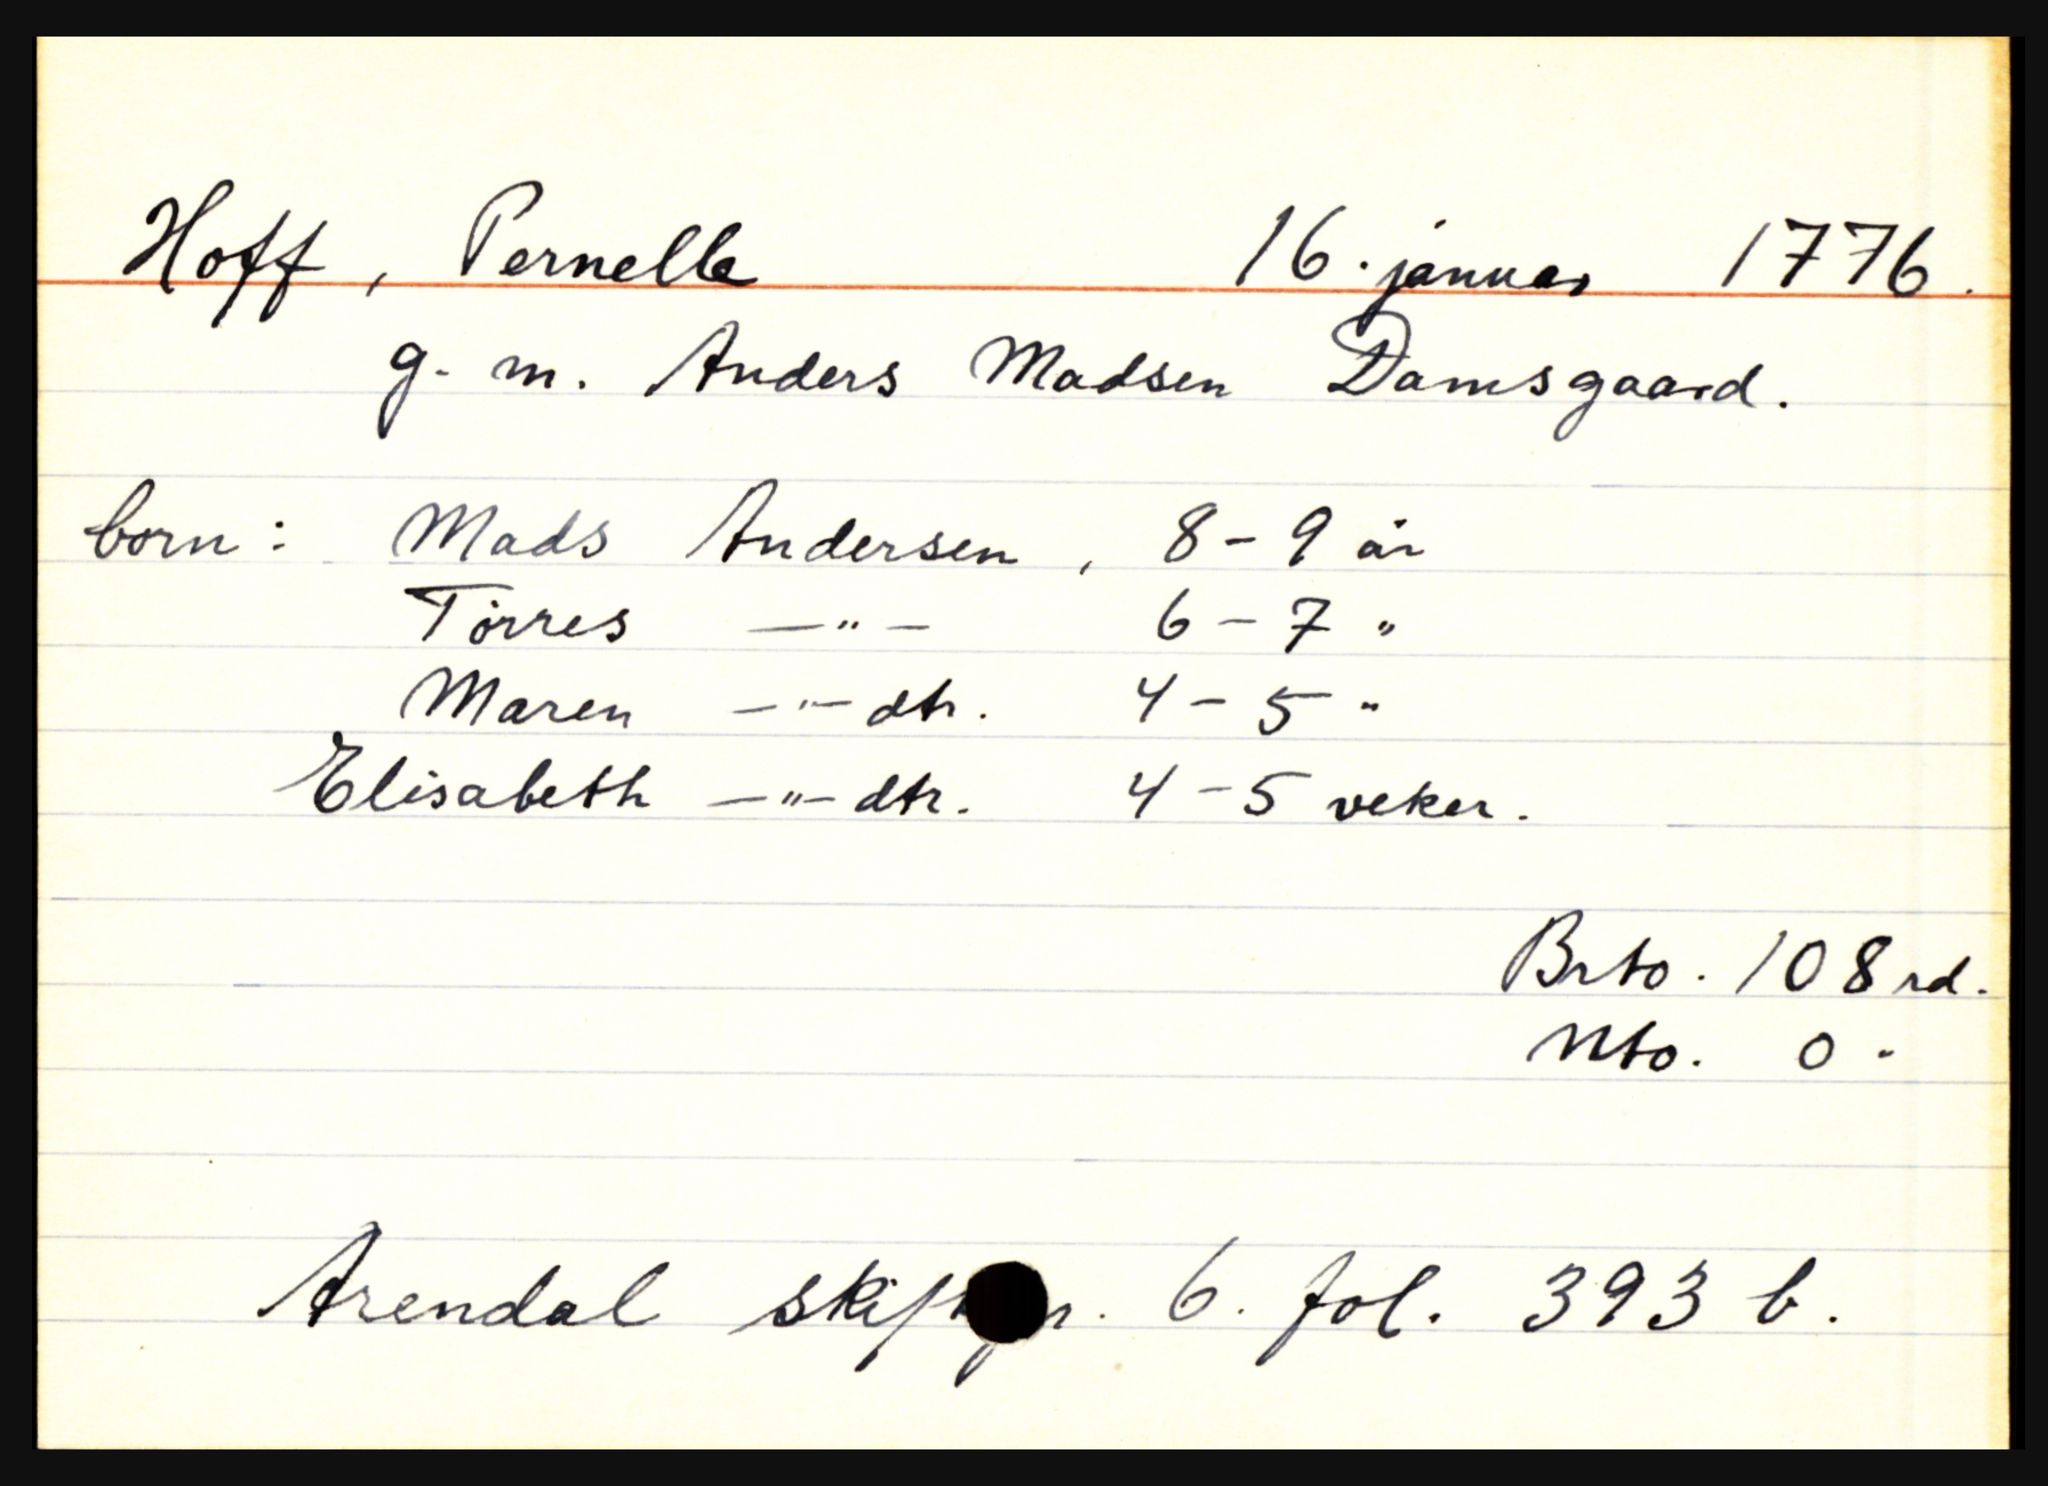 Hoff, Pernelle 16. januar 1776.
g. m. Anders Madsen Damsgaard.
born: Mads Andersen, 8 - 9 år
Tørres —"— 6 - 7 "
Maren —"— dtr. 4 - 5 "
Elisabeth —"— dtr. 4 - 5 veker.
Brto. 108 rd.
Nto. 0 "
Arendal 6. fol. 393 b.